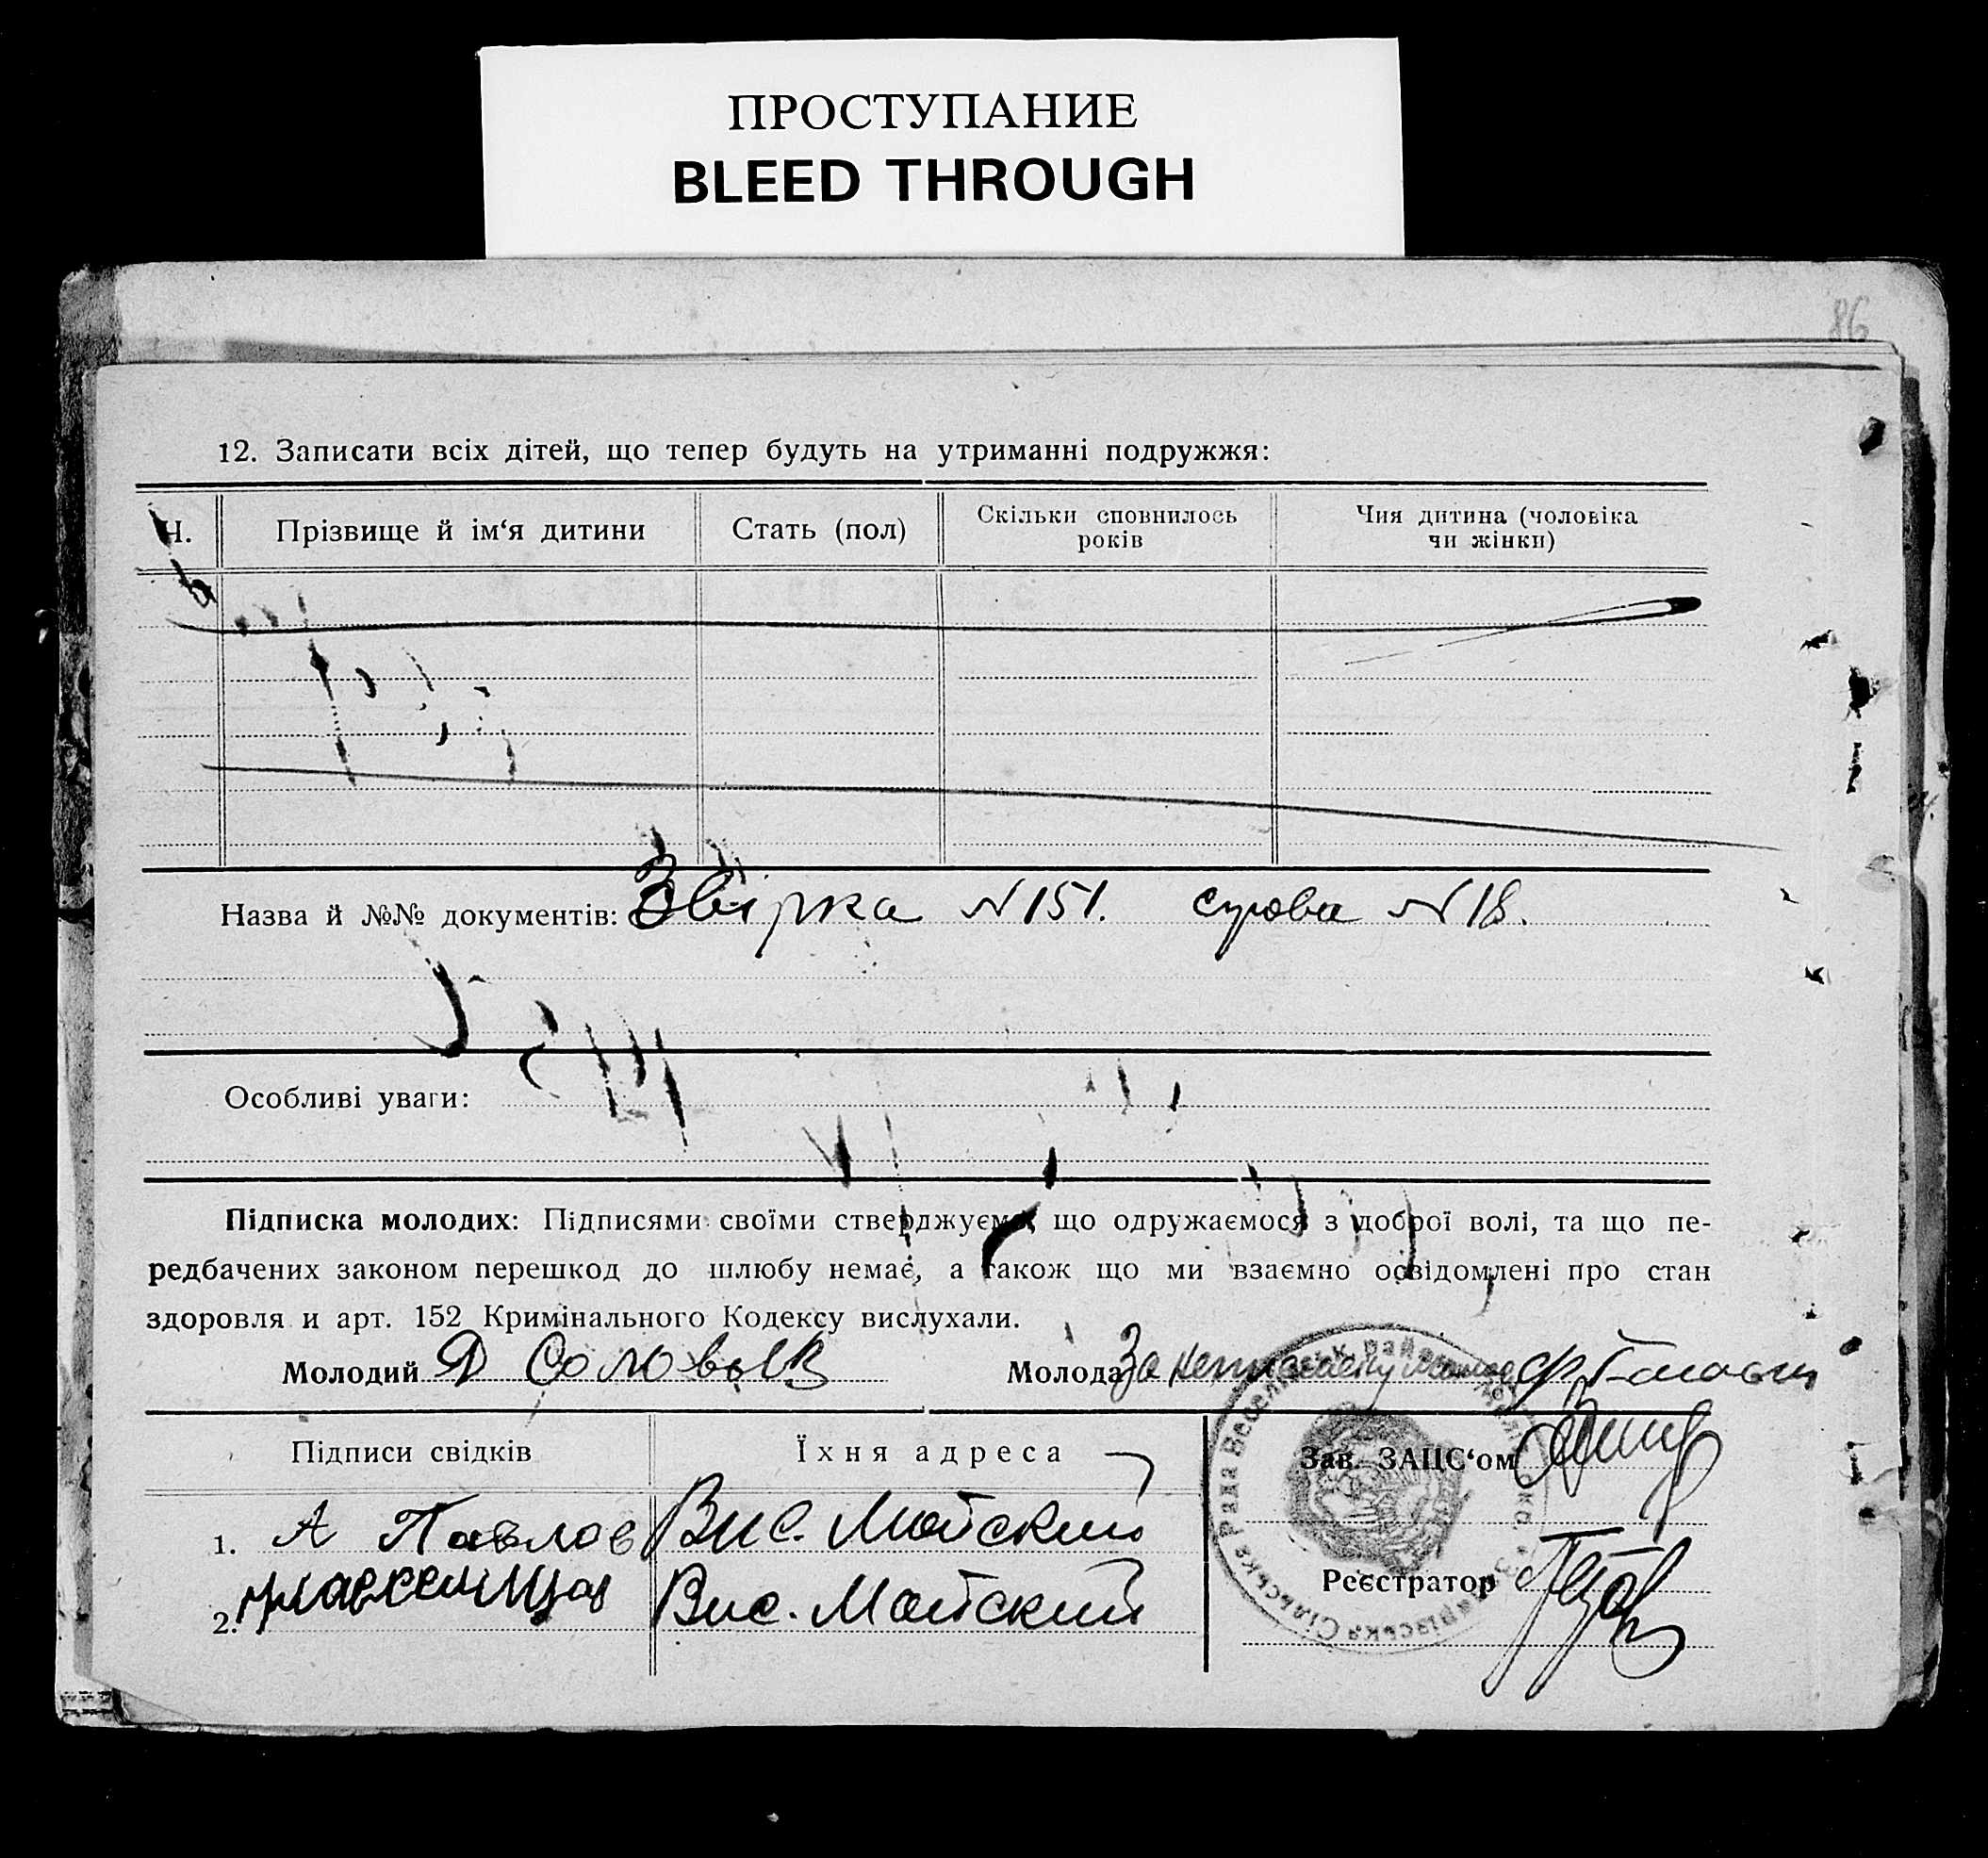 ПРОСТУПАНИЕ
BLEED THROUGH
86
12. Записати всіх дітей, що тепер будуть на утриманні подружжя:
Н.
Прізвище й ім‘я дитини
Стать (пол)
Скільки сповнилось
років
Чия дитина (чоловіка
чи жінки)
Назва й №№ документів: Збірка N 151. N 18.
Особливі уваги:
Підписка молодих: Підписями своїми стверджуємо, що одружаємося з доброї волі, та що пе-
редбачених законом перешкод до шлюбу немає, а також що ми взаємно освідомлені про стан
здоровля и арт. 152 Кримінального Кодексу вислухали.
Молодий Соловьев
Молода За
Підписи свідків
Їхня адреса
Зав. ЗАЦС‘ом
1. А Павлов Вис. Майский
Реєстратор
2. Вис. Майский
Сільська Рада